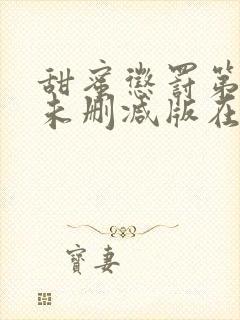 甜蜜懲罰第
未刪減版在
寶妻